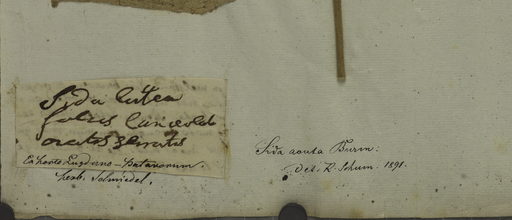 Sida lutea
foliis lanceolato
ovatis serratis
Ex horto Lugduno-patavorum.
herb. Schmiedel.
Sida acuta Burm:
Det. K. Schum. 1891.